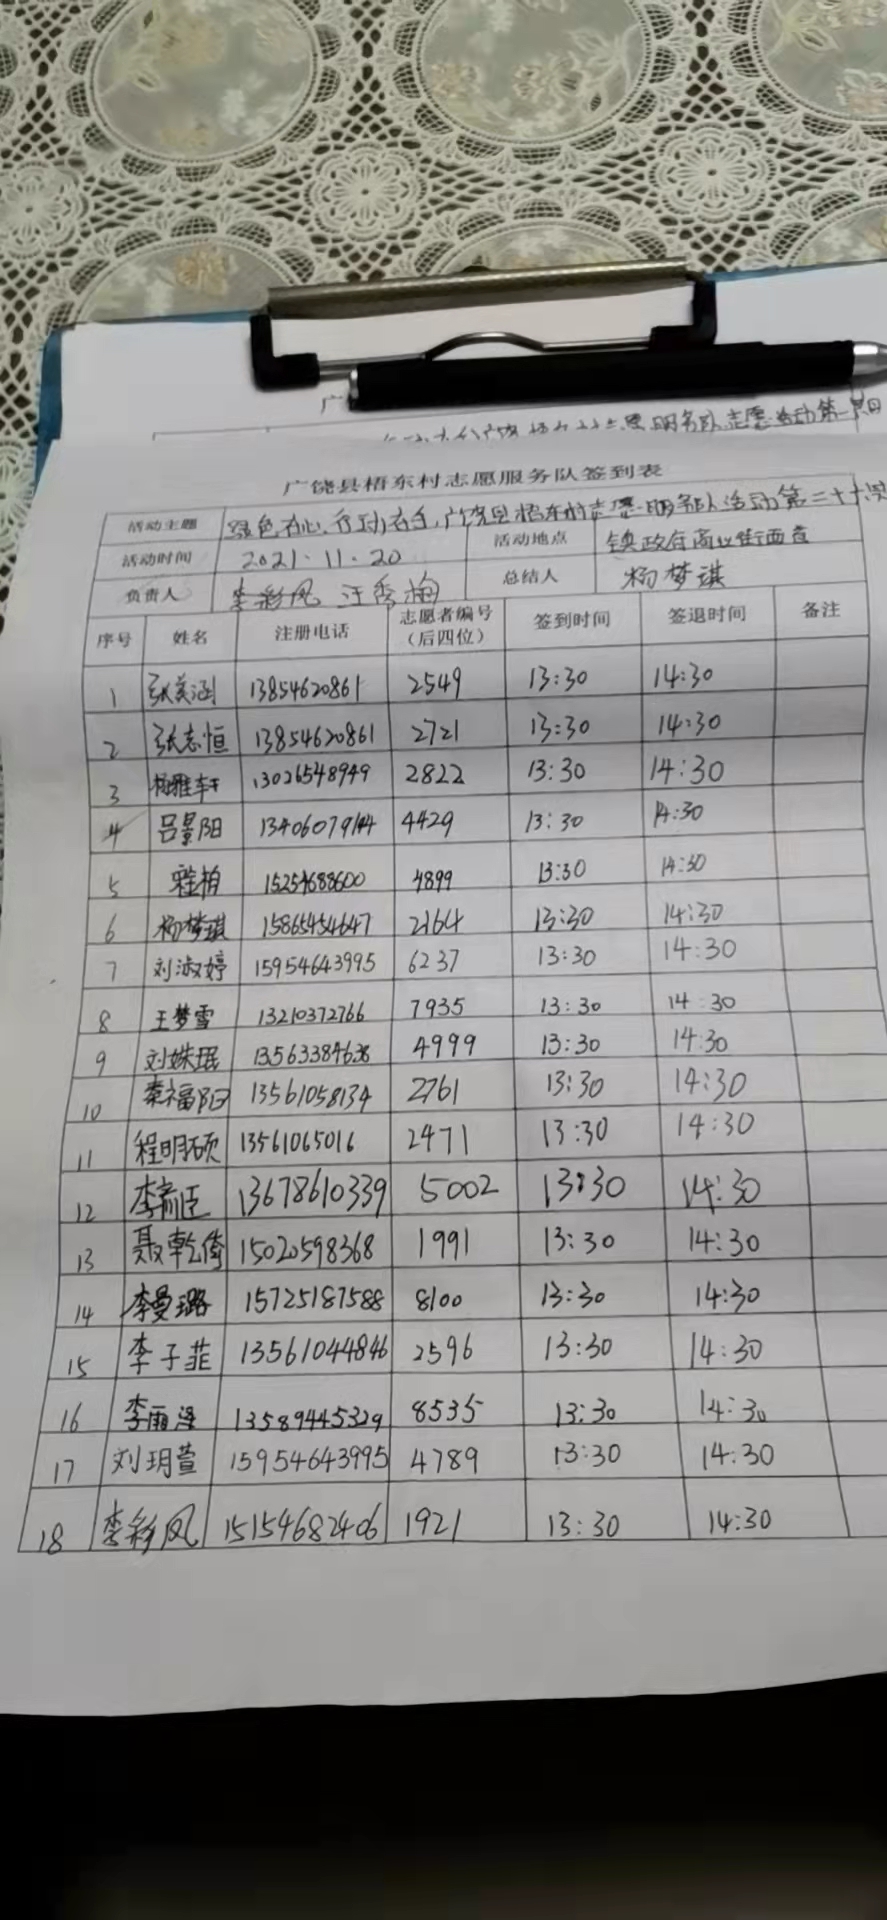 志愿活动第
广饶县梧东村志愿服务队签到表
活动主题 绿色在心,行动在手,广饶县梧东村志愿服务队活动第二十六次
活动时间 2021.11.20 活动地点 镇政府商业街西首
负责人 李彩凤 汪秀梅 总结人 杨梦琪
序号 姓名 注册电话 志愿者编号(后四位) 签到时间 签退时间 备注
1 张美涵 13854620861 2549 13:30 14:30
2 张志恒 13854620861 2721 13:30 14:30
3 杨雅轩 13026548949 2822 13:30 14:30
4 吕景阳 13406079144 4429 13:30 14:30
5 15254688600 4899 13:30 14:30
6 杨梦琪 15865454647 2164 13:30 14:30
7 刘淑婷 15954643995 6237 13:30 14:30
8 王梦雪 13210372766 7935 13:30 14:30
9 刘姝珉 13563384638 4999 13:30 14:30
10 秦福阳 13561058134 2761 13:30 14:30
11 程明硕 13561065016 2471 13:30 14:30
12 13678610339 5002 13:30 14:30
13 聂乾倚 15020598368 1991 13:30 14:30
14 李曼璐 15725187588 8100 13:30 14:30
15 李子菲 13561044846 2596 13:30 14:30
16 李雨泽 13589445329 8535 13:30 14:30
17 刘玥萱 15954643995 4789 13:30 14:30
18 李彩凤 15154682406 1921 13:30 14:30